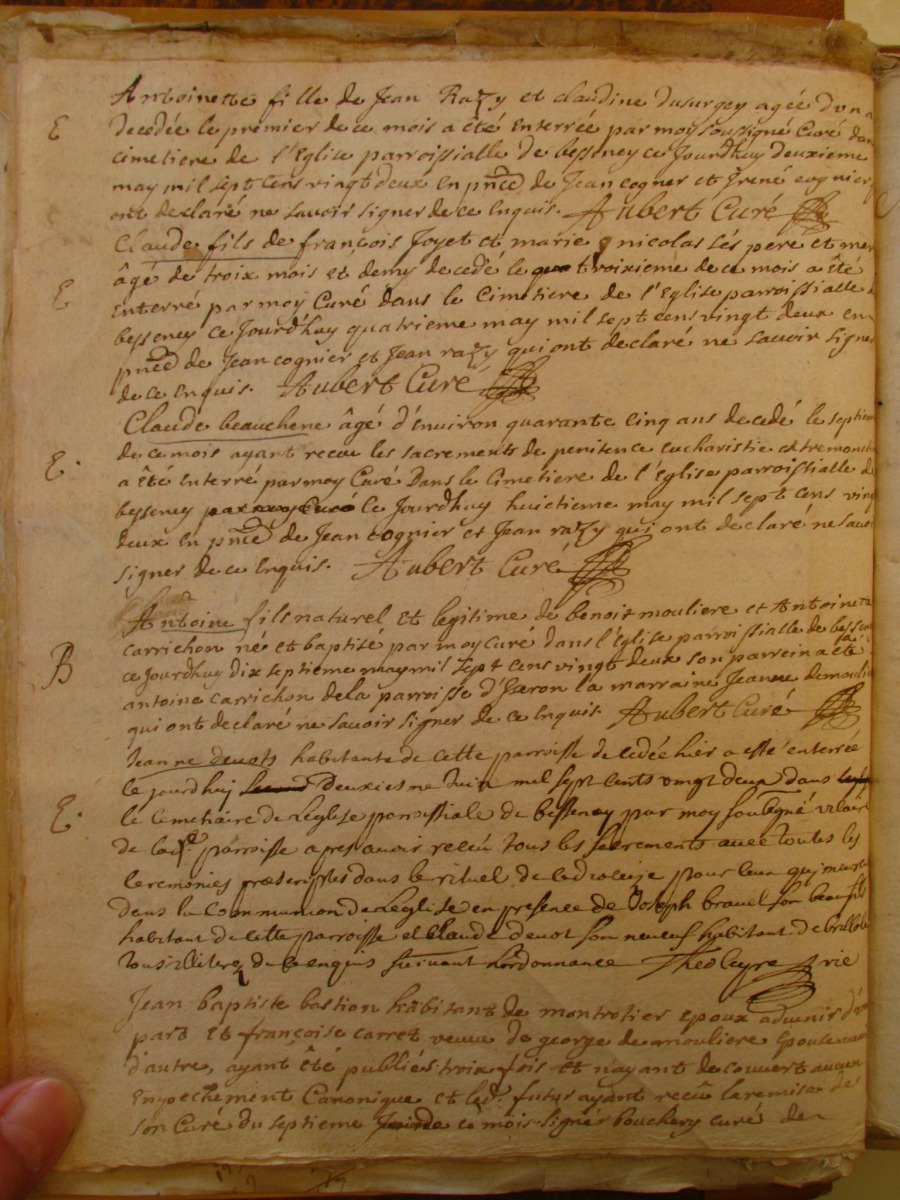 Antoinette fille de Jean Razy et claudine dusurgey agée d'un a
E decedée le premier de ce mois a êté enterrée par moy soussigné Curé dans
cimetiere de l'Eglise parroissialle de besseney ce Jourdhuy deuxieme
may mil sept cens vingt deux en pnce de Jean cognier et Irené cognier
ont declaré ne savoir signer de ce enquis. Aubert Curé
Claude fils de françois Joyet et marie nicolas sés pere et mer
E âgé de troix mois et demy decedé le troixieme de ce mois a êté
enterré par moy Curé dans le Cimetiere de l'Eglise parroissialle d
besseney ce Jourd'huy quatrieme may mil sept cens vingt deux en
pnce de Jean cognier et Jean razy qui ont declaré ne savoir signer
de ce enquis. Aubert Curé
Claude beauchene âgé d'environ quarante cinq ans decedé le septiem
E. de ce mois ayant receu les sacrements de penitence eucharistie extremonction
a êté enterré par moy Curé dans le Cimetiere de l'Eglise parroissialle de
besseney par moy Curé ce Jourdhuy huictieme may mil sept cens ving
deux en pnce de Jean cognier et Jean razy qui ont declaré ne savoi
signer de ce enquis. Aubert Curé
Antoine fils naturel et legitime de benoit mouliere et Antoinette
B carrichon né et baptisé par moy curé dans l'Eglise parroissialle de besseney
ce Jourdhuy dix septieme may mil sept cens vingt deux son parrein a êté
antoine carrichon de la parroisse d'Iseron la marraine Jeanne demouliere
qui ont declaré ne savoir signer de ce enquis. Aubert Curé
Jeanne devots habitante de cette parroisse decedée hier a esté enterrée
ce jourdhuy Deuxiesme Juin mil sept cents vingt deux dans
E. le Cemetiaire de l'eglise parroissiale de besseney par moy soubsigné vicaire
de parroisse apres avoir receu tous les sacrements avec toutes les
ceremonies prescriptes dans le rituel de ce diocese pour ceux qui meurent
dans la Communion de l'eglise en presence de Joseph bravet son beau fils
habitant de cette parroisse et Claude devot son neveuf habitant de
tous illiterez de ce enquis suivant l'ordonnance Theoleyre vic
Jean baptiste bastion habitant de montrotier epoux advenir d'une
part et françoise carret veuve de george demouliere Epouse
d'autre, ayant êté publiés trois fois et n'ayant decouvert aucun
Empechement Canonique et led. futur ayant receu la remise de
son Curé du septieme ce mois signés bouchery curé de